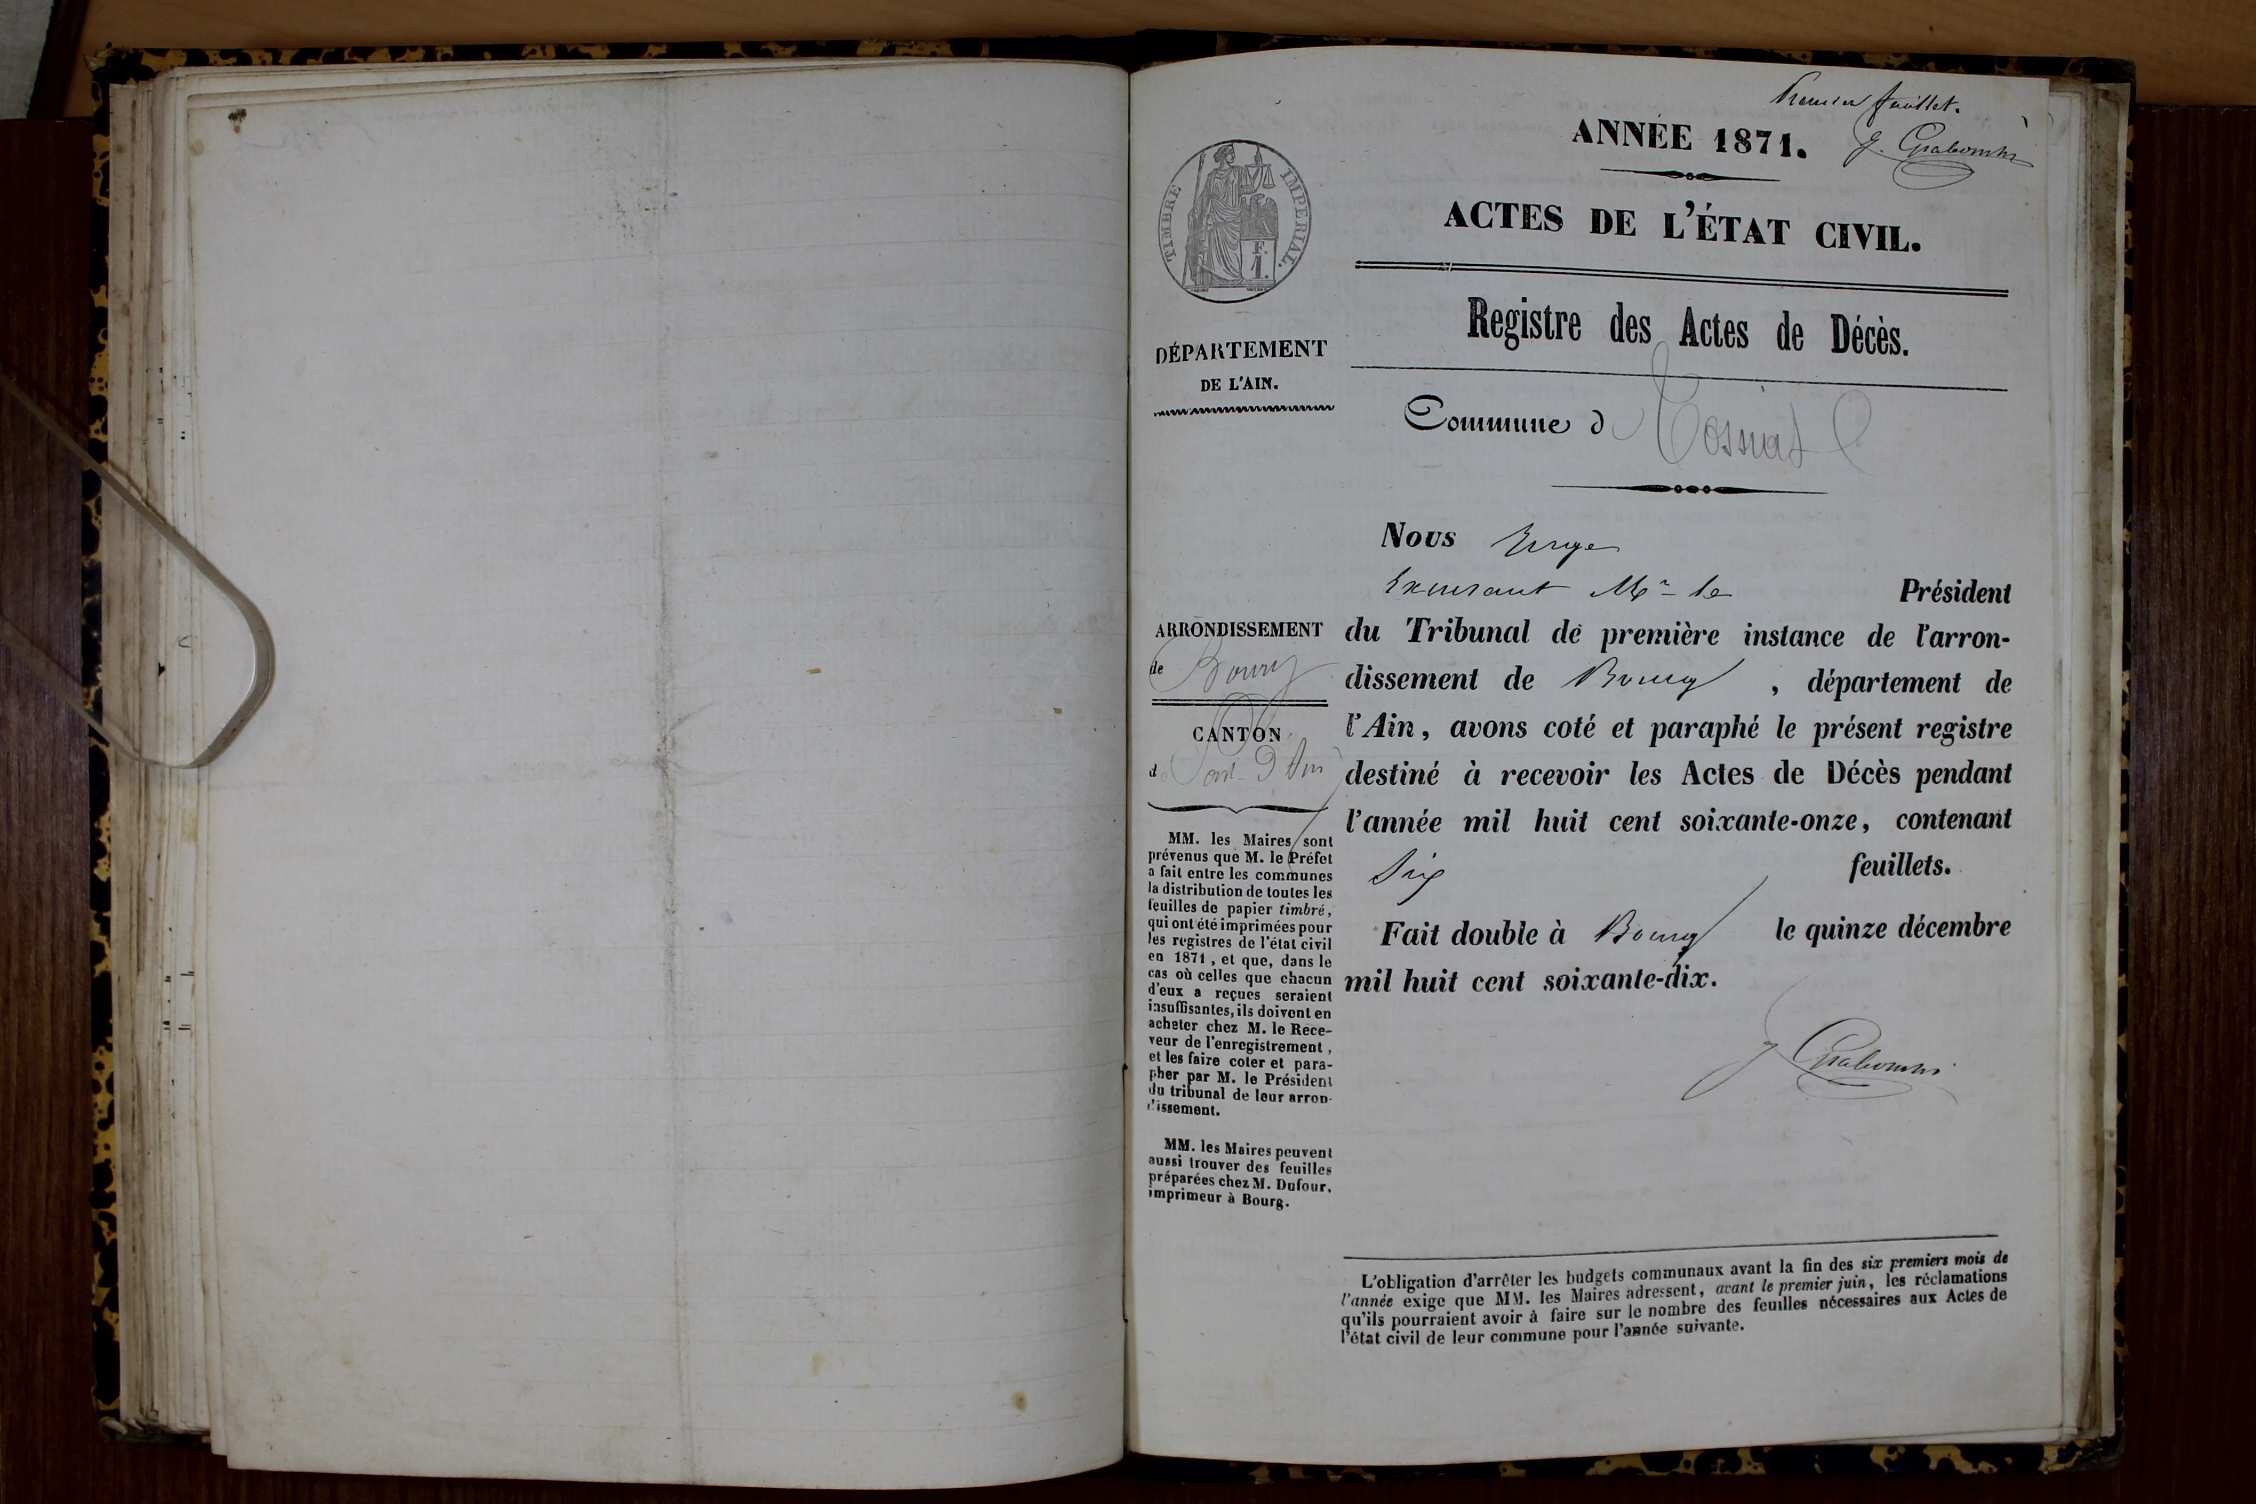 Premier feuillet.
ANNÉE 1871.
ACTES DE L'ÉTAT CIVIL.
Registre des Actes de Décès.
Commune d Tossiat
TIMBRE IMPERIAL.
F.
1.
DÉPARTEMENT
DE L'AIN.
ARRONDISSEMENT
de Bourg
CANTON
de Pont-d'Ain
MM. les Maires sont
prévenus que M. le Préfet
a fait entre les communes
la distribution de toutes les
feuilles de papier timbré,
qui ont été imprimées pour
les registres de l'état civil
en 1871, et que, dans le
cas où celles que chacun
d'eux a reçues seraient
insuffisantes, ils doivent en
acheter chez M. le Rece-
veur de l'enregistrement,
et les faire coter et para-
pher par M. le Président
du tribunal de leur arron-
dissement.
MM. les Maires peuvent
aussi trouver des feuilles
préparées chez M. Dufour,
imprimeur à Bourg.
Nous Juge
Excusant Mr le Président
du Tribunal de première instance de l'arron-
dissement de Bourg, département de
l'Ain, avons coté et paraphé le présent registre
destiné à recevoir les Actes de Décès pendant
l'année mil huit cent soixante-onze, contenant
Six feuillets.
Fait double à Bourg le quinze décembre
mil huit cent soixante-dix.
L'obligation d'arrêter les budgets communaux avant la fin des six premiers mois de
l'année exige que MM. les Maires adressent, avant le premier juin, les réclamations
qu'ils pourraient avoir à faire sur le nombre des feuilles nécessaires aux Actes de
l'état civil de leur commune pour l'année suivante.